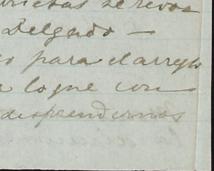 se revo
Delgado —
o para el arreglo
a lo que con
desprendernos